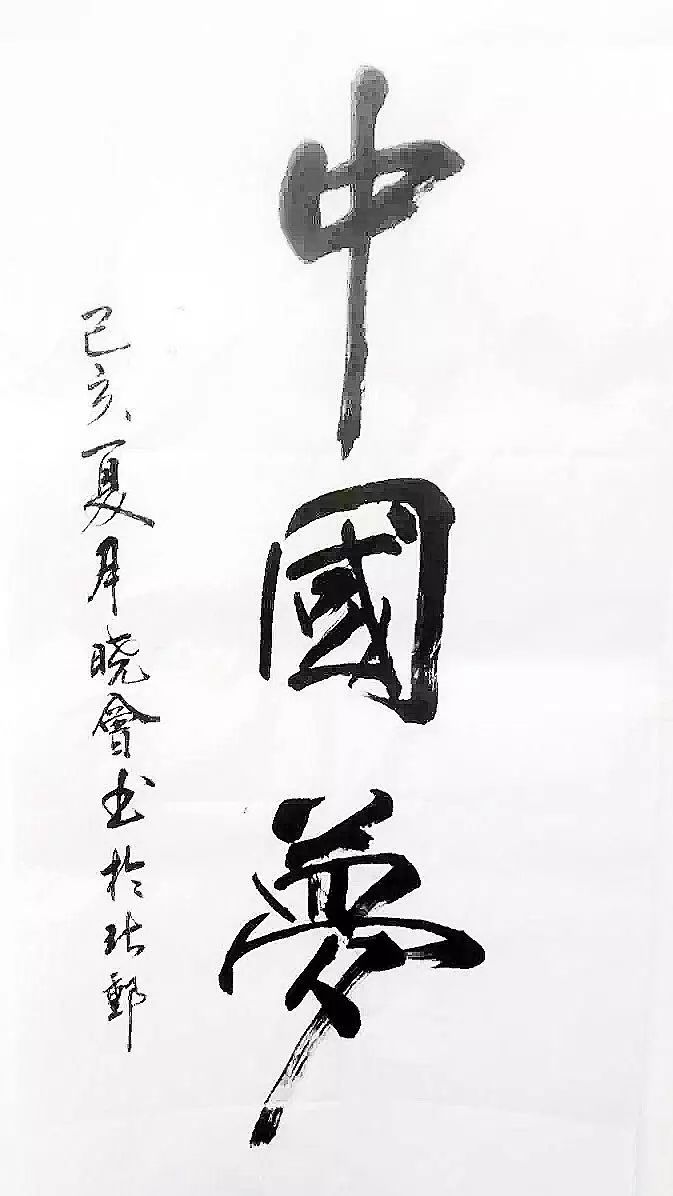 中國夢
己亥夏月晓會书於北郵